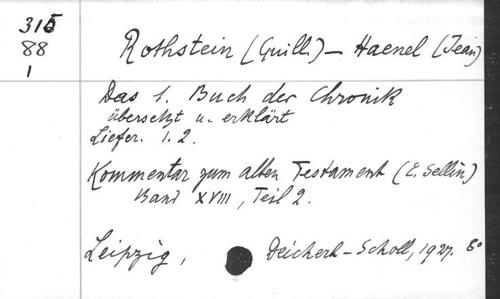 315
88
1
Rothstein (Guill.) - Haenel (Jean)
Das 1. Buch der Chronik
übersetzt u. erklärt
Liefer. 1. 2.
Kommentar zum alten Testament (E. Sellin)
Band XVIII, Teil 2.
Leipzig, Deichert - Scholl, 1927. 8°